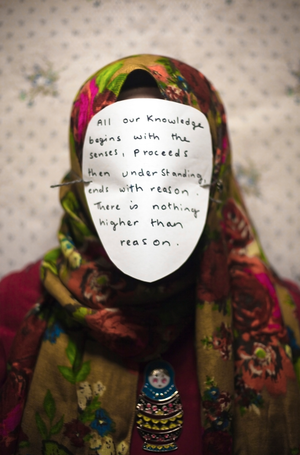 All our Knowledge
begins with the
senses, proceeds
then understanding,
ends with reason.
There is nothing
higher than
reason.